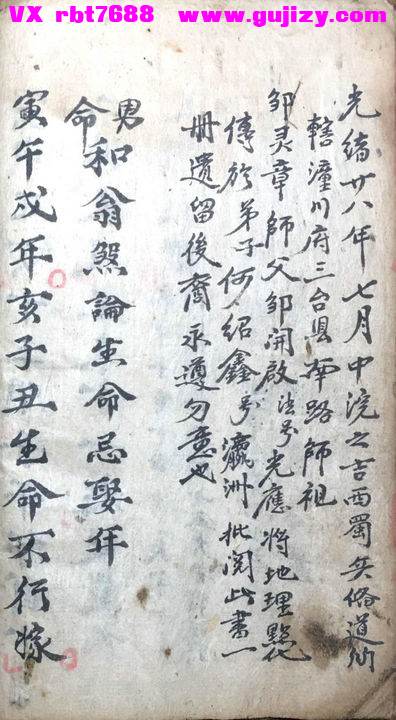 VX rbt7688 www.gujizy.com
光緒廿八年七月中浣之吉西蜀
轄潼川府三台县南路師祖
邹灵章師父邹開啟法号光應将地理
傳於弟子何紹鑫号瀛洲批阅此書一
册遺留後裔永遵勿意也
男命和翁煞論生命忌娶年
寅午戍年亥子丑生命不行嫁